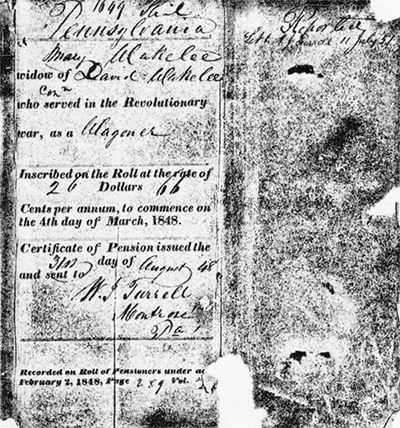 1649 Phil
Pennsylvania
Mary Wakelee
widow of David Wakelee
Conn
who served in the Revolutionary
war, as a Wagoner
Inscribed on the Roll at the rate of
26 Dollars 66
Cents per annum, to commence on
the 4th day of March, 1848.
Certificate of Pension issued the
31st day of August 48
and sent to
W. J. Turrell
Montrose
Pa
Recorded on Roll of Pensioners under act
February 2, 1848, Page 289 Vol.
Reported
11 July